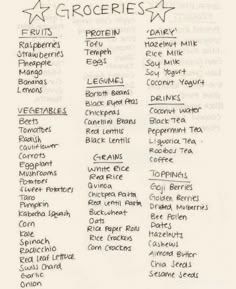 GROCERIES
FRUITS
Raspberries
Strawberries
Pineapple
Mango
Bananas
Lemons
VEGETABLES
Beets
Tomatoes
Radish
Cauliflower
Carrots
Eggplant
Mushrooms
Potatoes
Sweet Potatoes
Taro
Pumpkin
Kabocha Squash
Corn
Kale
Spinach
Radicchio
Red Leaf Lettuce
Swiss Chard
Garlic
Onion
PROTEIN
Tofu
Tempeh
Eggs
LEGUMES
Borlotti Beans
Black Eyed Peas
Chickpeas
Canellini Beans
Red Lentils
Black Lentils
GRAINS
White Rice
Red Rice
Quinoa
Chickpea Pasta
Red Lentil Pasta
Buckwheat
Oats
Rice Paper Rolls
Rice Crackers
Corn Crackers
'DAIRY'
Hazelnut Milk
Rice Milk
Soy Milk
Soy Yogurt
Coconut Yogurt
DRINKS
Coconut Water
Black Tea
Peppermint Tea
Tea
Rooibos Tea
Coffee
TOPPINGS
Goji Berries
Golden Berries
Dried Mulberries
Bee Pollen
Dates
Hazelnuts
Cashews
Almond Butter
Chia Seeds
Sesame Seeds